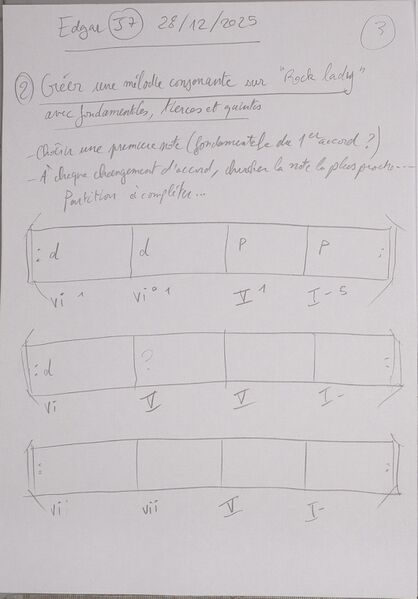 Edgar 37 28/12/2025
3
2 Créer une mélodie consonante sur "Rock lady"
avec fondamentales, tierces et quintes
- Choisir une première note (fondamentale du 1er accord ?)
- À chaque changement d'accord, chercher la note la plus proche...
Partition à compléter...
: d d P P :
vi 1 vi° 1 V 1 I- 5
: d ? :
vi V V I-
: :
vi vii V I-